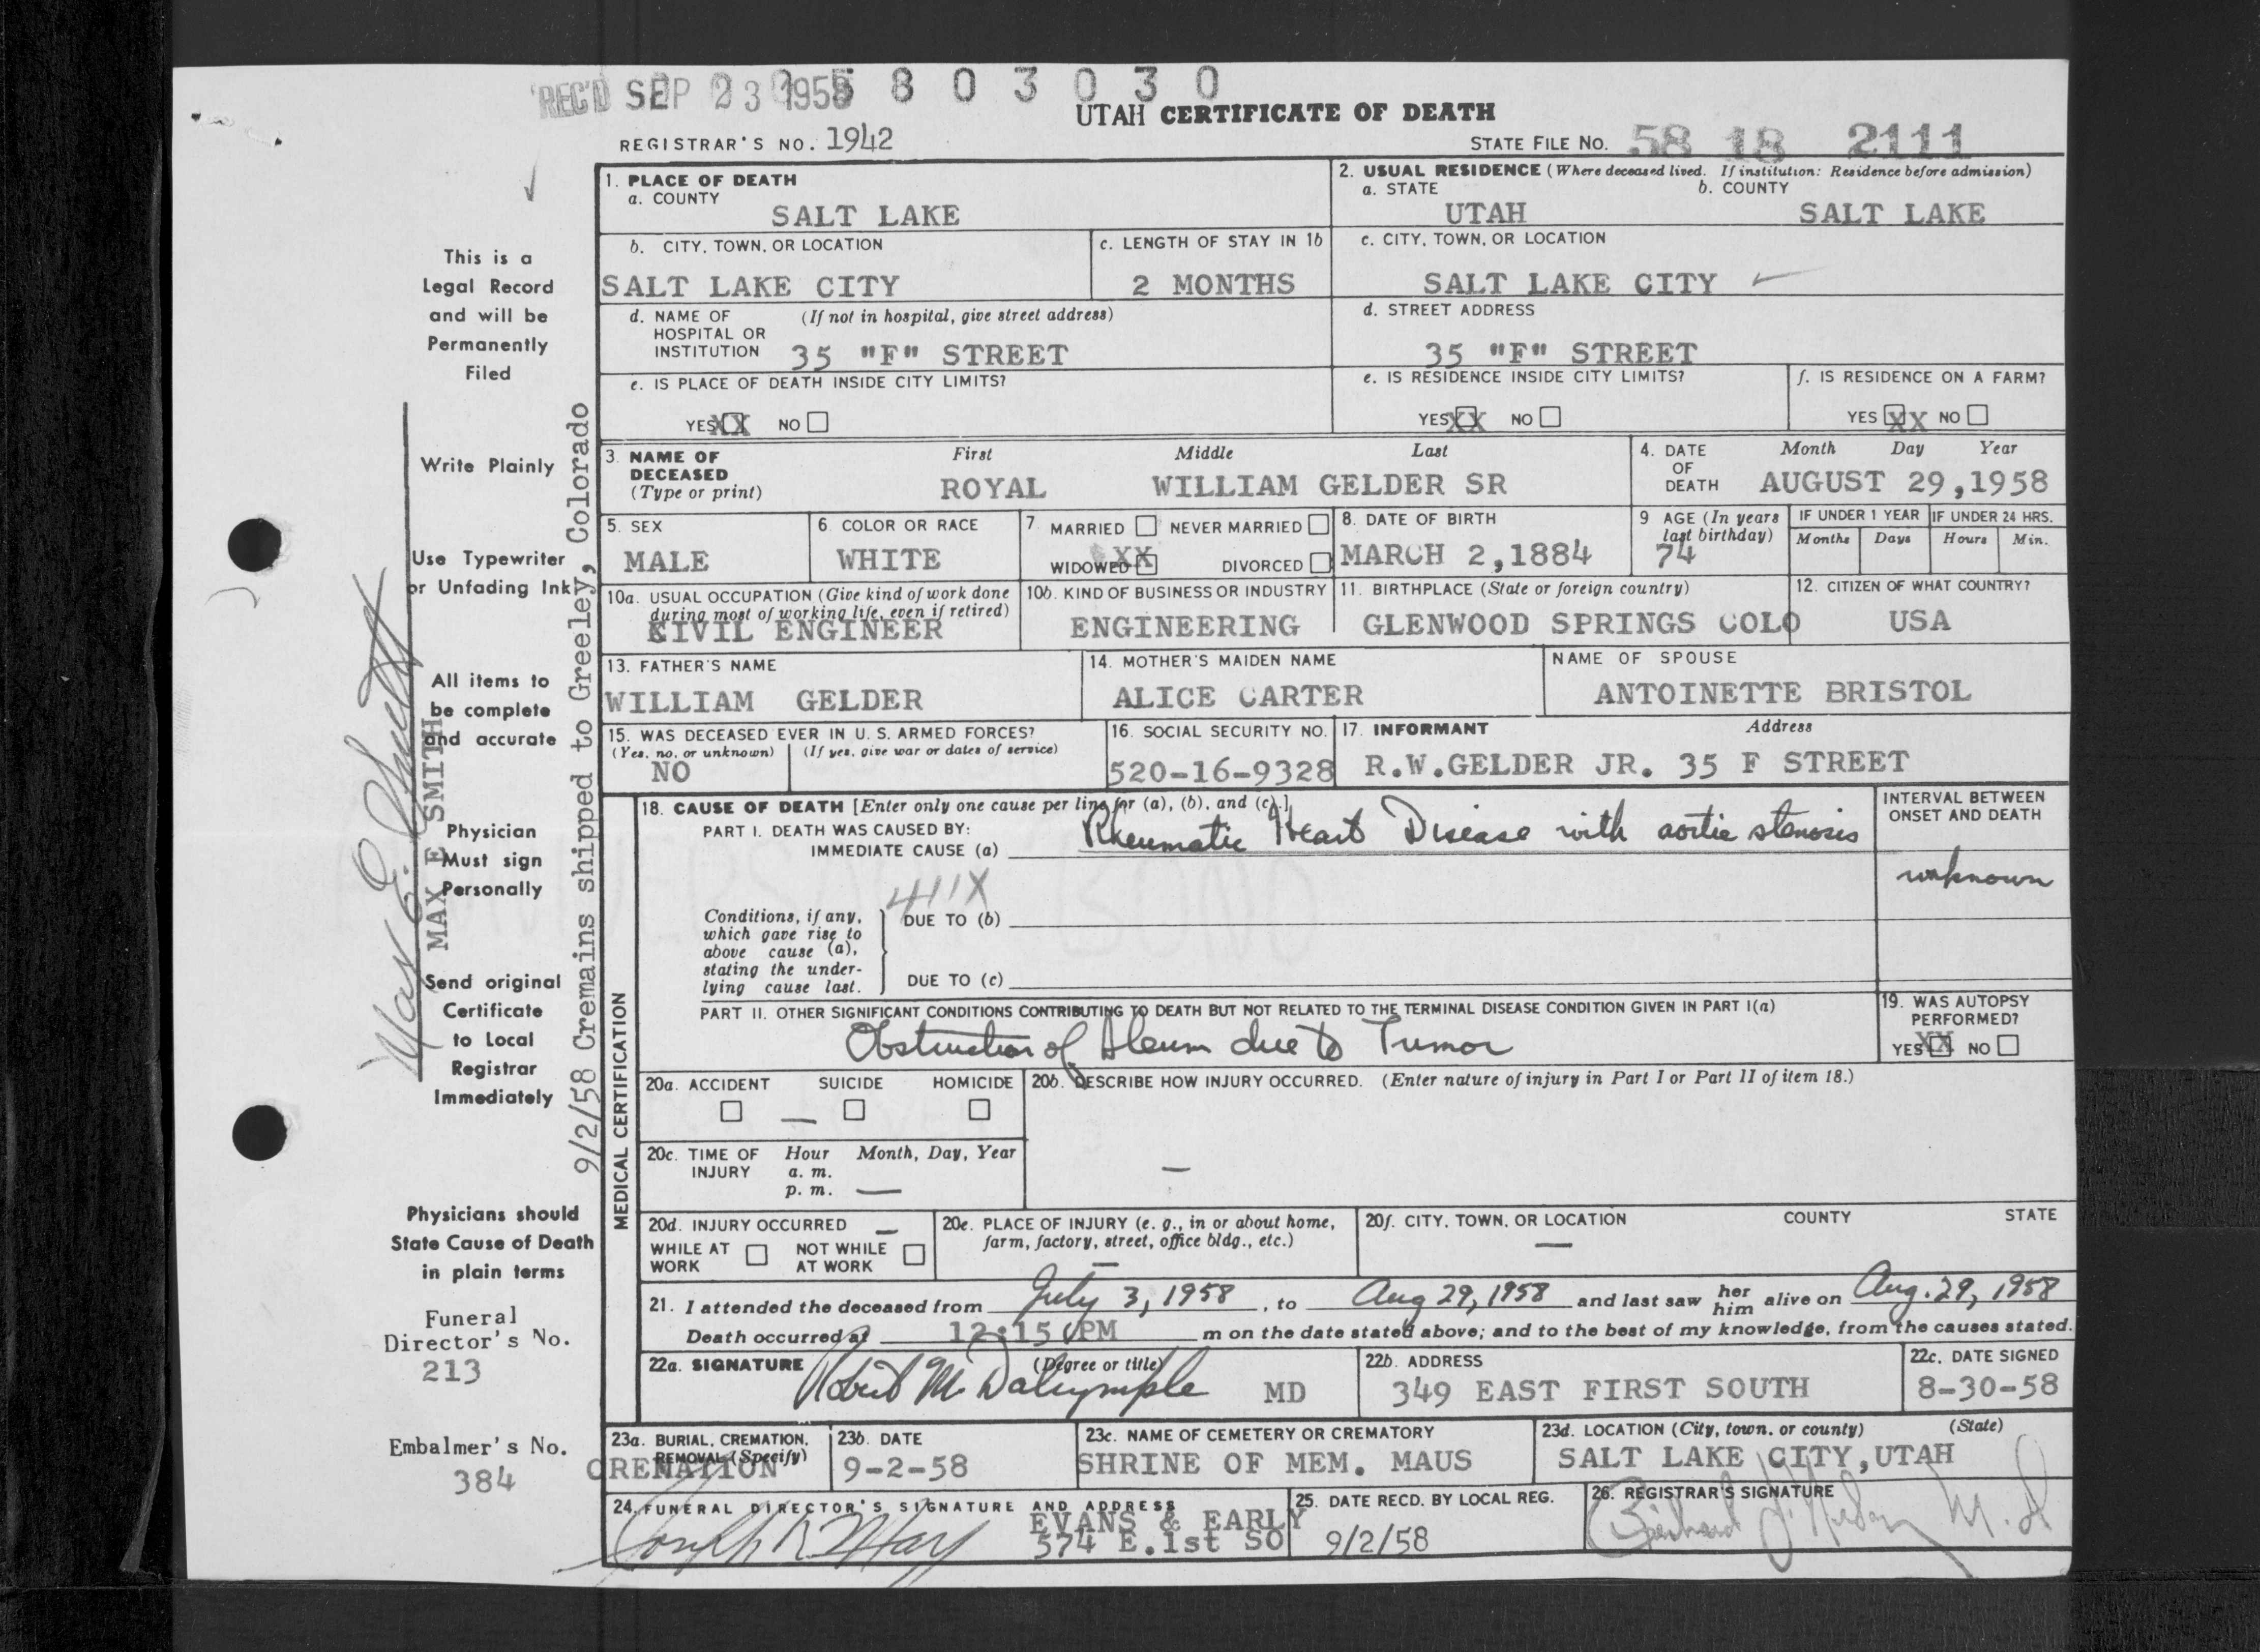 REC'D SEP 23 1958 5803030
UTAH CERTIFICATE OF DEATH
REGISTRAR'S NO. 1942
STATE FILE NO. 58 18 2111
1. PLACE OF DEATH
a. COUNTY
SALT LAKE
2. USUAL RESIDENCE (Where deceased lived. If institution: Residence before admission)
a. STATE b. COUNTY
UTAH SALT LAKE
b. CITY, TOWN, OR LOCATION
SALT LAKE CITY
c. LENGTH OF STAY IN 1b
2 MONTHS
c. CITY, TOWN, OR LOCATION
SALT LAKE CITY
d. NAME OF (If not in hospital, give street address)
HOSPITAL OR
INSTITUTION 35 "F" STREET
d. STREET ADDRESS
35 "F" STREET
e. IS PLACE OF DEATH INSIDE CITY LIMITS?
YES XX NO
e. IS RESIDENCE INSIDE CITY LIMITS?
YES XX NO
f. IS RESIDENCE ON A FARM?
YES XX NO
3. NAME OF DECEASED
(Type or print)
First Middle Last
ROYAL WILLIAM GELDER SR
4. DATE OF DEATH
Month Day Year
AUGUST 29,1958
5. SEX
MALE
6. COLOR OR RACE
WHITE
7. MARRIED NEVER MARRIED
XX
WIDOWED DIVORCED
8. DATE OF BIRTH
MARCH 2,1884
9 AGE (In years
last birthday)
74
IF UNDER 1 YEAR
Months Days
IF UNDER 24 HRS.
Hours Min.
10a. USUAL OCCUPATION (Give kind of work done
during most of working life, even if retired)
CIVIL ENGINEER
10b. KIND OF BUSINESS OR INDUSTRY
ENGINEERING
11. BIRTHPLACE (State or foreign country)
GLENWOOD SPRINGS COLO
12. CITIZEN OF WHAT COUNTRY?
USA
13. FATHER'S NAME
WILLIAM GELDER
14. MOTHER'S MAIDEN NAME
ALICE CARTER
NAME OF SPOUSE
ANTOINETTE BRISTOL
15. WAS DECEASED EVER IN U. S. ARMED FORCES?
(Yes, no, or unknown) (If yes, give war or dates of service)
NO
16. SOCIAL SECURITY NO.
520-16-9328
17. INFORMANT Address
R.W.GELDER JR. 35 F STREET
MEDICAL CERTIFICATION
18. CAUSE OF DEATH [Enter only one cause per line for (a), (b), and (c).]
PART I. DEATH WAS CAUSED BY:
IMMEDIATE CAUSE (a) Rheumatic Heart Disease with aortic stenosis
INTERVAL BETWEEN
ONSET AND DEATH
unknown
411X
Conditions, if any,
which gave rise to
above cause (a),
stating the under-
lying cause last.
DUE TO (b)
DUE TO (c)
PART II. OTHER SIGNIFICANT CONDITIONS CONTRIBUTING TO DEATH BUT NOT RELATED TO THE TERMINAL DISEASE CONDITION GIVEN IN PART I(a)
Obstruction of Ileum due to Tumor
19. WAS AUTOPSY
PERFORMED?
YES XX NO
20a. ACCIDENT SUICIDE HOMICIDE
20b. DESCRIBE HOW INJURY OCCURRED. (Enter nature of injury in Part I or Part II of item 18.)
20c. TIME OF INJURY
Hour Month, Day, Year
a. m.
p. m. —
—
20d. INJURY OCCURRED —
WHILE AT WORK
NOT WHILE AT WORK
20e. PLACE OF INJURY (e. g., in or about home,
farm, factory, street, office bldg., etc.)
—
20f. CITY, TOWN, OR LOCATION COUNTY STATE
—
21. I attended the deceased from July 3, 1958, to Aug 29, 1958 and last saw her him alive on Aug. 29, 1958
Death occurred at 12:15 PM m on the date stated above; and to the best of my knowledge, from the causes stated.
22a. SIGNATURE (Degree or title)
Robert M. Dalrymple MD
22b. ADDRESS
349 EAST FIRST SOUTH
22c. DATE SIGNED
8-30-58
23a. BURIAL, CREMATION,
REMOVAL (Specify)
CREMATION
23b. DATE
9-2-58
23c. NAME OF CEMETERY OR CREMATORY
SHRINE OF MEM. MAUS
23d. LOCATION (City, town, or county) (State)
SALT LAKE CITY,UTAH
24. FUNERAL DIRECTOR'S SIGNATURE AND ADDRESS
EVANS & EARLY
574 E.1st SO
25. DATE RECD. BY LOCAL REG.
9/2/58
26. REGISTRAR'S SIGNATURE
This is a
Legal Record
and will be
Permanently
Filed
Write Plainly
Use Typewriter
or Unfading Ink
All items to
be complete
and accurate
Physician
Must sign
Personally
Send original
Certificate
to Local
Registrar
Immediately
Physicians should
State Cause of Death
in plain terms
Funeral
Director's No.
213
Embalmer's No.
384
Max E. Smith
MAX E SMITH
9/2/58 Cremains shipped to Greeley, Colorado